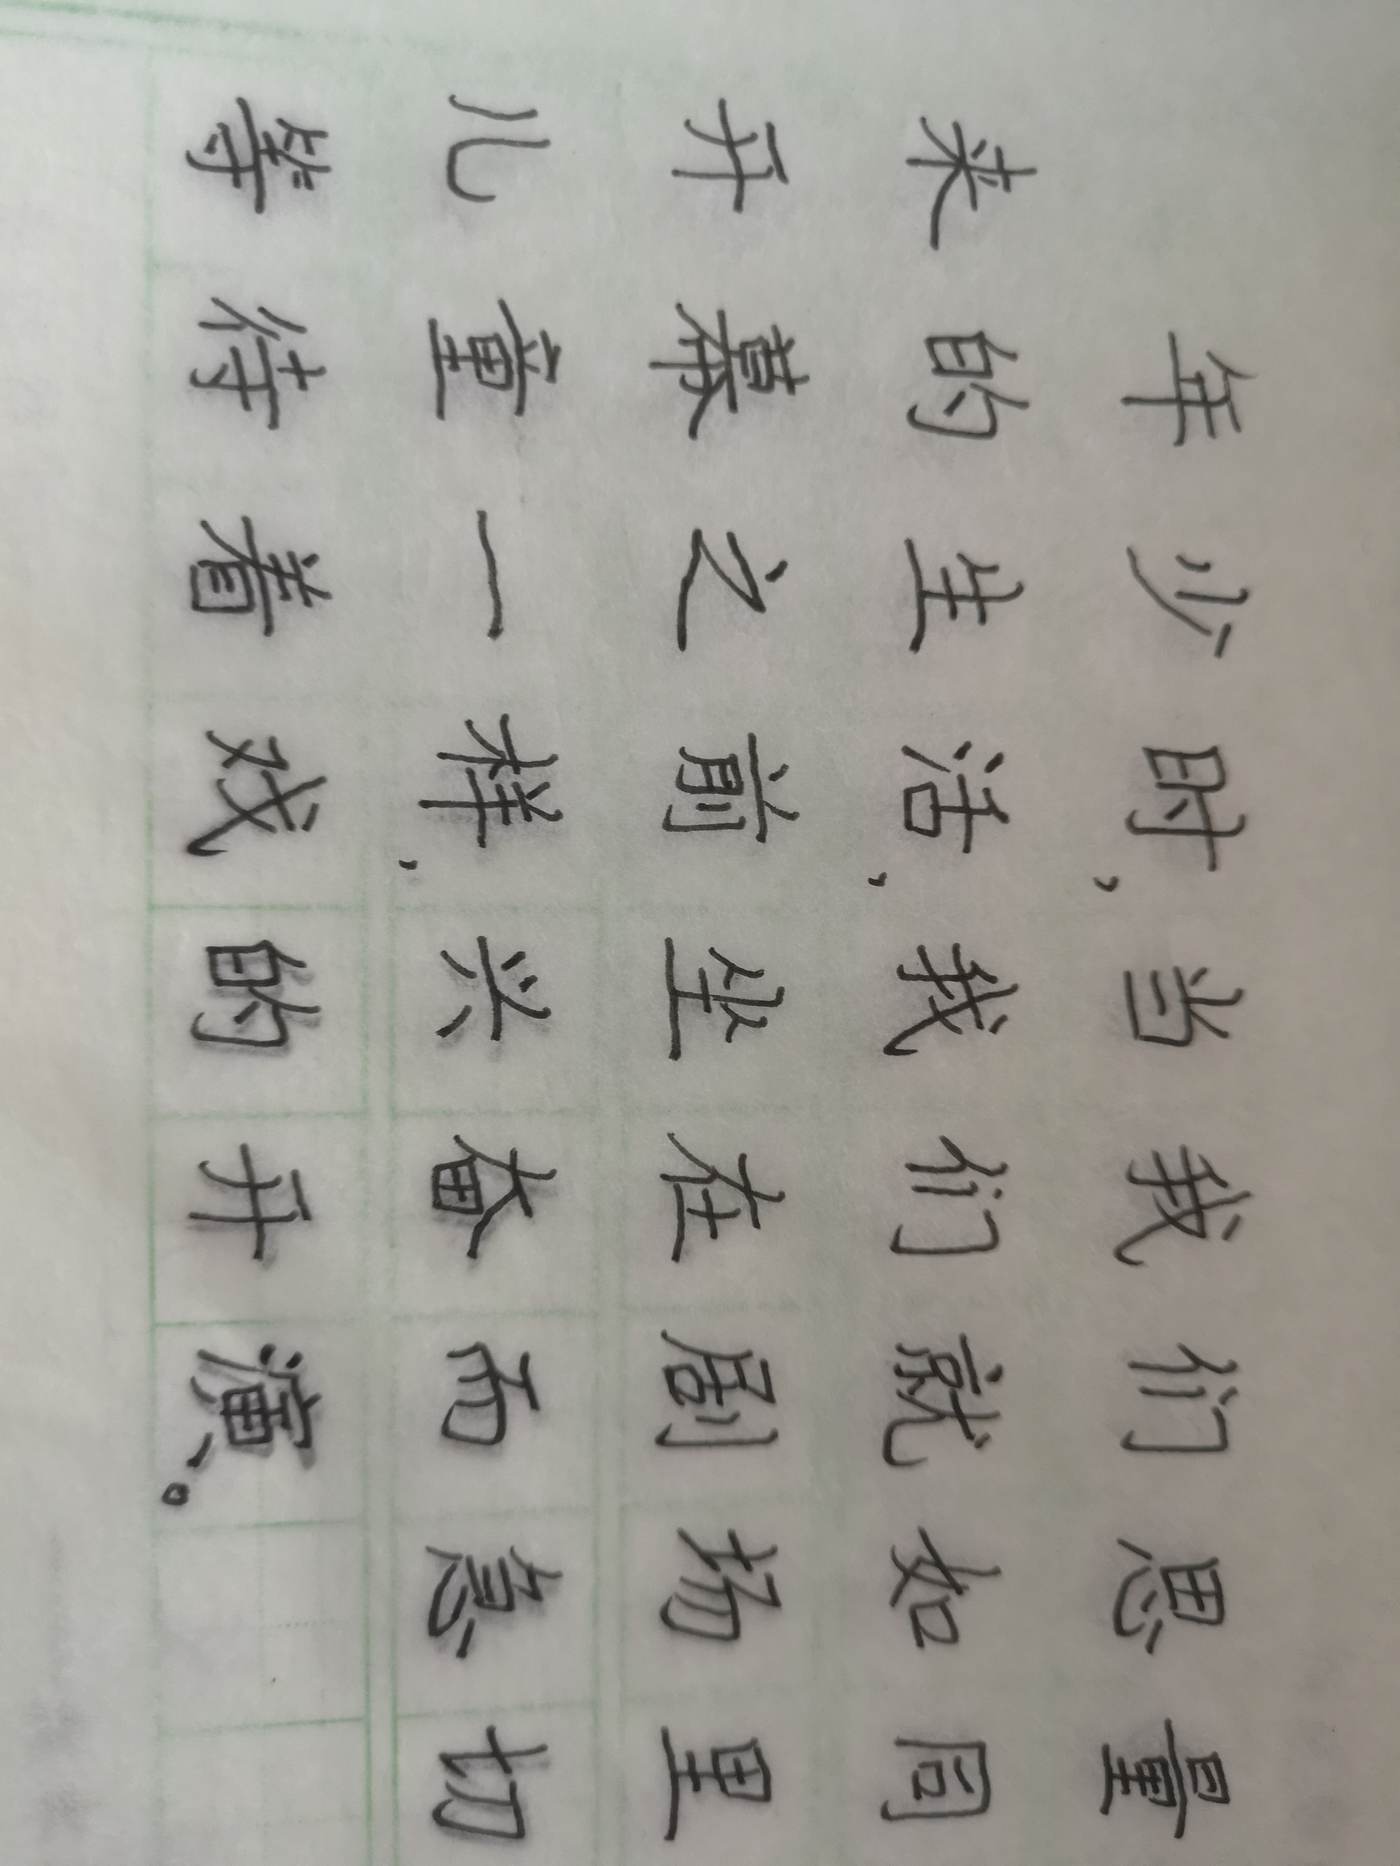 年少时，当我们思量
未的生活，我们就如同
开幕之前坐在剧场里
儿童一样，兴奋而急切
等待着戏的开演。